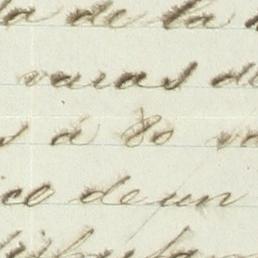 la de la
varas de
s á 80 va
ico de un